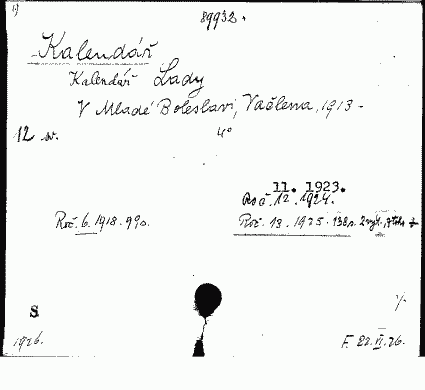 89932.
Kalendář
Kalendář Lady
V Mladé Boleslavi, Vačlena, 1913 -
12 sv. 4°
11. 1923.
Roč. 12. 1924.
Roč. 6. 1918. 99s. Roč. 13. 1925. 138s.
S
1926. F. 22. VI. 26.